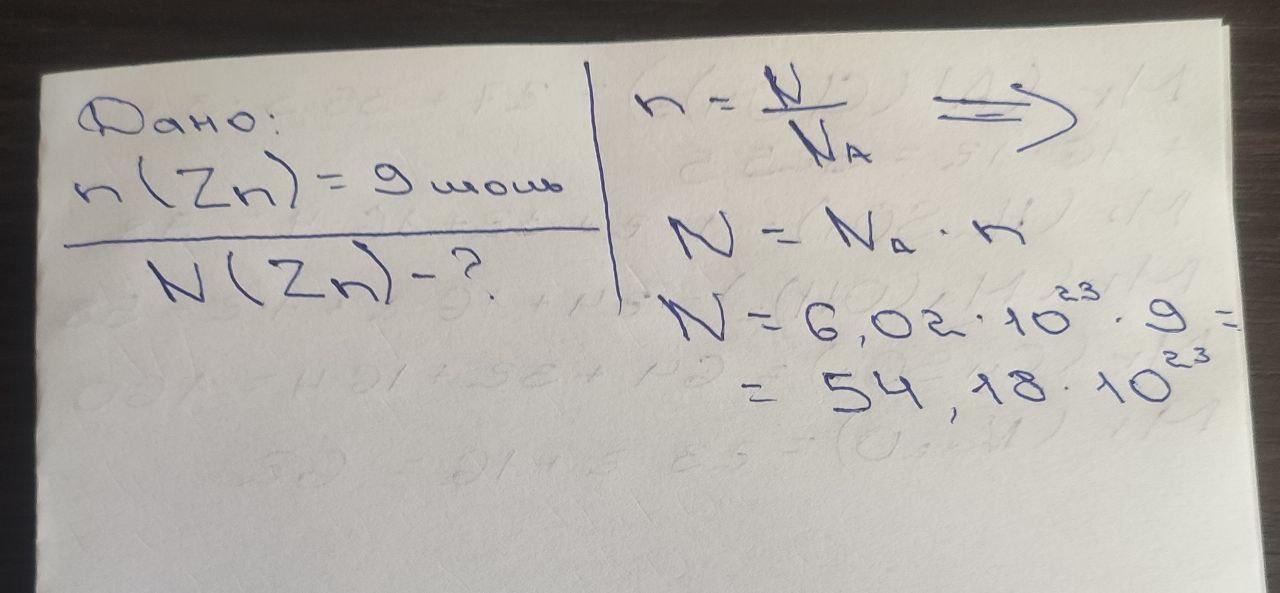 Дано:
n(Zn) = 9 моль
N(Zn) - ?
n = N / NA =>
N = NA · n
N = 6,02 · 10²³ · 9 =
= 54,18 · 10²³